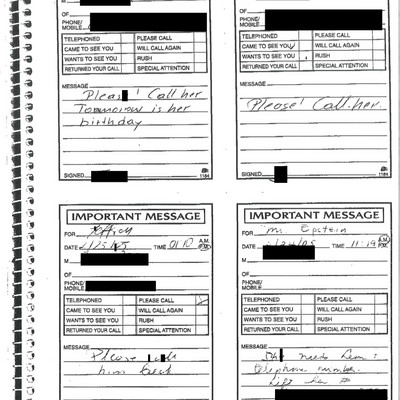 OF
PHONE/
MOBILE
TELEPHONED PLEASE CALL
CAME TO SEE YOU WILL CALL AGAIN
WANTS TO SEE YOU RUSH
RETURNED YOUR CALL SPECIAL ATTENTION
MESSAGE
Call her
Tomorrow is her
birthday
SIGNED
1184
OF
PHONE/
MOBILE
TELEPHONED PLEASE CALL
CAME TO SEE YOU WILL CALL AGAIN
WANTS TO SEE YOU RUSH
RETURNED YOUR CALL SPECIAL ATTENTION
MESSAGE
Please! Call her.
SIGNED
1184
IMPORTANT MESSAGE
FOR
DATE TIME A.M.
P.M.
M
OF
PHONE/
MOBILE
TELEPHONED PLEASE CALL
CAME TO SEE YOU WILL CALL AGAIN
WANTS TO SEE YOU RUSH
RETURNED YOUR CALL SPECIAL ATTENTION
MESSAGE
Please
him back
IMPORTANT MESSAGE
FOR Mr. Epstein
DATE TIME 11:19 A.M.
P.M.
M
OF
PHONE/
MOBILE
TELEPHONED PLEASE CALL
CAME TO SEE YOU WILL CALL AGAIN
WANTS TO SEE YOU RUSH
RETURNED YOUR CALL SPECIAL ATTENTION
MESSAGE
needs
telephone number.